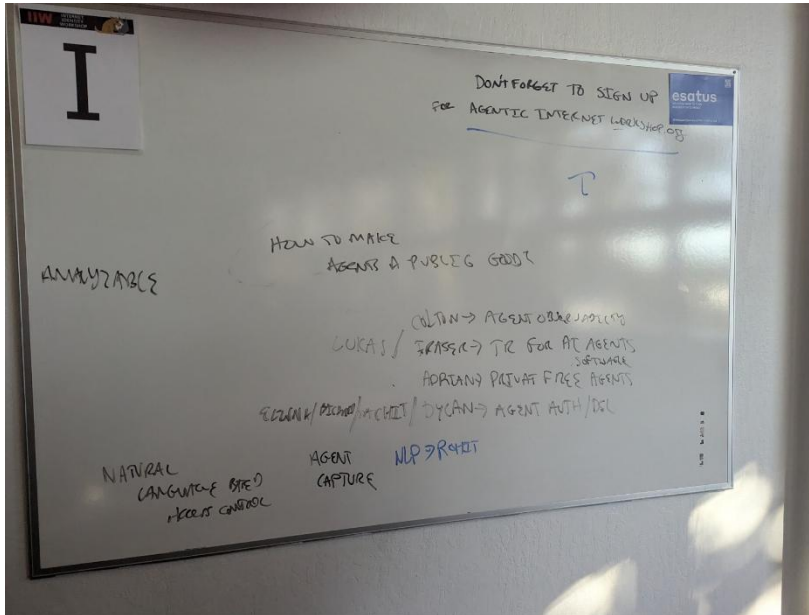 IIW INTERNET IDENTITY WORKSHOP
I
DON'T FORGET TO SIGN UP
FOR AGENTIC INTERNET WORKSHOP.org
esatus
HOW TO MAKE
AGENTS A PUBLIC GOOD?
ANALYZABLE
COLTON → AGENT OBSERVABILITY
LUKAS / FRASER → TR FOR AI AGENTS
SOFTWARE
ADRIAN → PRIVAT FREE AGENTS
/ DYLAN → AGENT AUTH / DSL
NATURAL
LANGUAGE BASED
ACCESS CONTROL
AGENT
CAPTURE
NLP → ROHIT